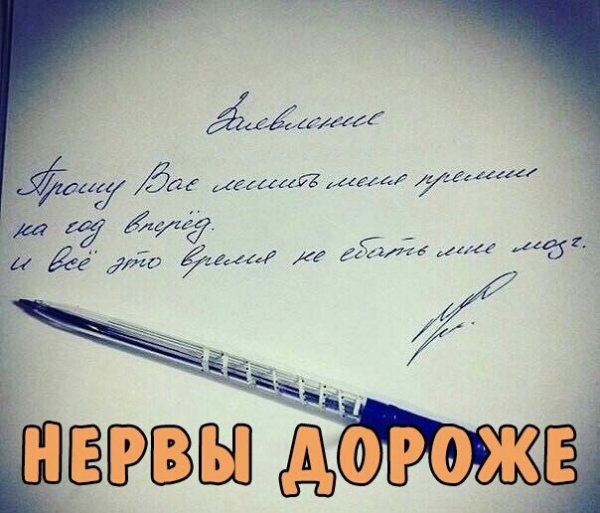 Заявление
Прошу Вас лишить меня премии
на год вперёд.
и всё это время не ебать мне мозг.
НЕРВЫ ДОРОЖЕ